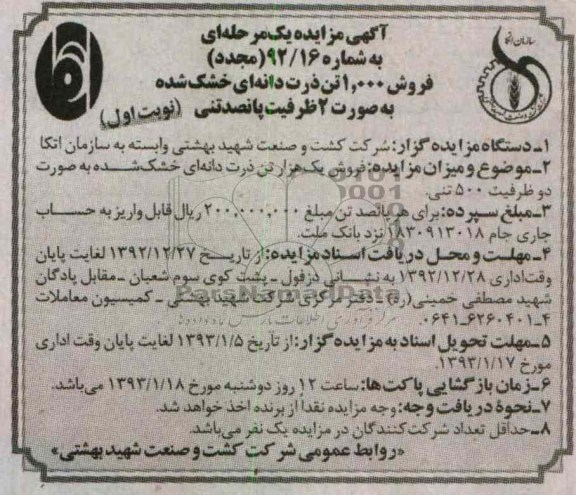 سازمان اتکا
آگهی مزایده یک مرحله‌ای
به شماره ۹۲/۱۶ (مجدد)
فروش ۱,۰۰۰ تن ذرت دانه‌ای خشک شده
به صورت ۲ ظرفیت پانصد تنی (نوبت اول)
۱ـ دستگاه مزایده گزار: شرکت کشت و صنعت شهید بهشتی وابسته به سازمان اتکا
۲ـ موضوع و میزان مزایده: فروش یک هزار تن ذرت دانه‌ای خشک شده به صورت
دو ظرفیت ۵۰۰ تنی.
۳ـ مبلغ سپرده: برای هر پانصد تن مبلغ ۲۰۰,۰۰۰,۰۰۰ ریال قابل واریز به حساب
جاری جام ۱۸۳۰۹۱۳۰۱۸ نزد بانک ملت.
۴ـ مهلت و محل دریافت اسناد مزایده: از تاریخ ۱۳۹۲/۱۲/۲۷ لغایت پایان
وقت اداری ۱۳۹۲/۱۲/۲۸ به نشانی دزفول ـ پشت کوی سوم شعبان ـ مقابل پادگان
شهید مصطفی خمینی(ره) ـ دفتر مرکزی شرکت شهید بهشتی ـ کمیسیون معاملات
۴ـ۰۶۴۱ـ۶۲۶۰۴۰۱.
۵ـ مهلت تحویل اسناد به مزایده گزار: از تاریخ ۱۳۹۳/۱/۵ لغایت پایان وقت اداری
مورخ ۱۳۹۳/۱/۱۷.
۶ـ زمان بازگشایی پاکت‌ها: ساعت ۱۲ روز دوشنبه مورخ ۱۳۹۳/۱/۱۸ می‌باشد.
۷ـ نحوهٔ دریافت وجه: وجه مزایده نقداً از برنده اخذ خواهد شد.
۸ـ حداقل تعداد شرکت کنندگان در مزایده یک نفر می‌باشد.
«روابط عمومی شرکت کشت و صنعت شهید بهشتی»